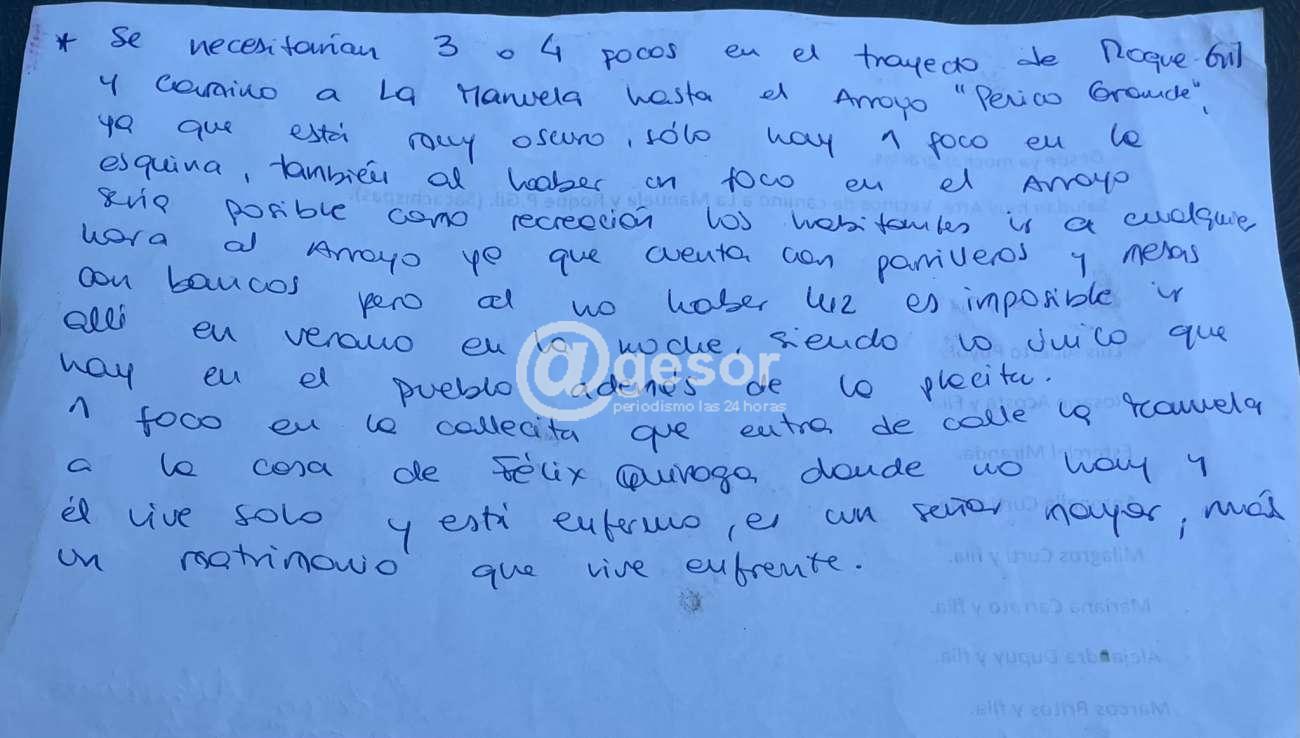 * Se necesitarían 3 o 4 focos en el trayecto de Roque Gil
y camino a La Manuela hasta el Arroyo "Perico Grande",
ya que está muy oscuro, sólo hay 1 foco en la
esquina, también al haber un foco en el Arroyo
sería posible como recreación los habitantes ir a cualquier
hora al Arroyo ya que cuenta con parrilleros y mesas
con bancos pero al no haber luz es imposible ir
allí en verano en la noche, siendo lo único que
hay en el pueblo además de la placita.
1 foco en la callecita que entra de calle la Manuela
a la casa de Félix Quiroga donde no hay y
él vive solo y está enfermo, es un señor mayor, más
un matrimonio que vive enfrente.
@gesor
periodismo las 24 horas
Milagros Curti y flia.
Mariana Canaro y flia.
Alejandra Dupuy y flia.
Marcos Britos y flia.